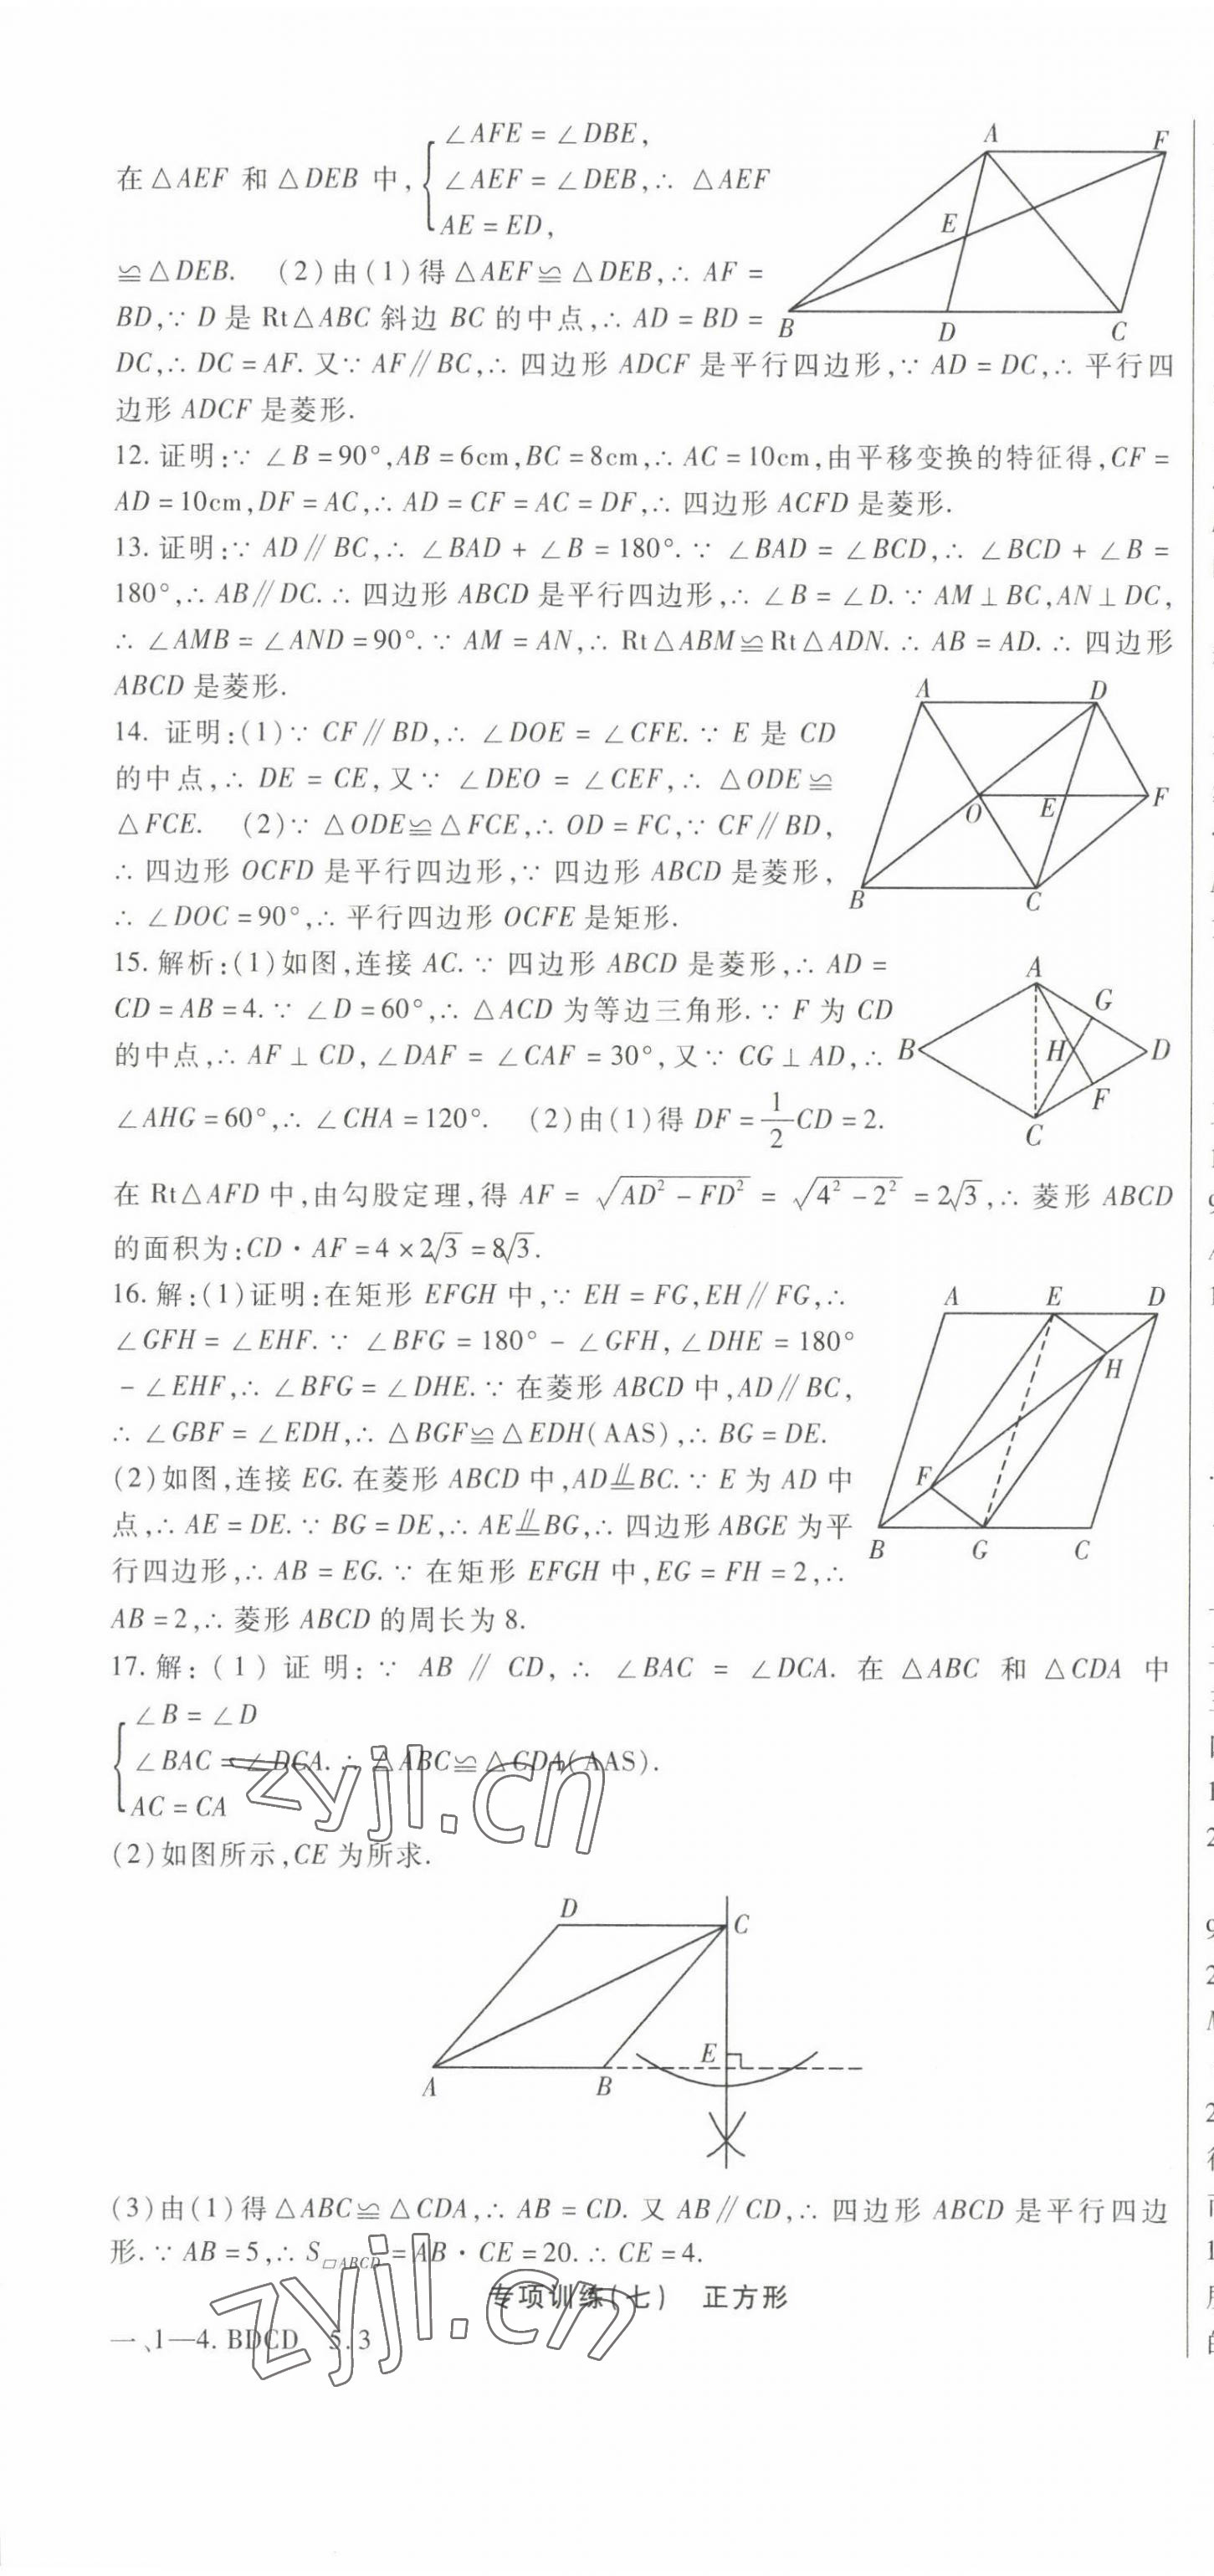 ∠AFE = ∠DBE,
在△AEF 和 △DEB 中, ∠AEF = ∠DEB,∴ △AEF
AE = ED,
≌△DEB. (2)由(1)得△AEF≌△DEB,∴ AF =
BD,∵ D 是 Rt△ABC 斜边 BC 的中点,∴ AD = BD =
DC,∴ DC = AF. 又∵ AF∥BC,∴ 四边形 ADCF 是平行四边形,∵ AD = DC,∴ 平行四
边形 ADCF 是菱形.
A F E B D C
12. 证明:∵ ∠B = 90°,AB = 6cm,BC = 8cm,∴ AC = 10cm,由平移变换的特征得,CF =
AD = 10cm,DF = AC,∴ AD = CF = AC = DF,∴ 四边形 ACFD 是菱形.
13. 证明:∵ AD∥BC,∴ ∠BAD + ∠B = 180°. ∵ ∠BAD = ∠BCD,∴ ∠BCD + ∠B =
180°,∴ AB∥DC. ∴ 四边形 ABCD 是平行四边形,∴ ∠B = ∠D. ∵ AM⊥BC,AN⊥DC,
∴ ∠AMB = ∠AND = 90°. ∵ AM = AN,∴ Rt△ABM≌Rt△ADN. ∴ AB = AD. ∴ 四边形
ABCD 是菱形.
14. 证明:(1)∵ CF∥BD,∴ ∠DOE = ∠CFE. ∵ E 是 CD
的中点,∴ DE = CE,又∵ ∠DEO = ∠CEF,∴ △ODE≌
△FCE. (2)∵ △ODE≌△FCE,∴ OD = FC,∵ CF∥BD,
∴ 四边形 OCFD 是平行四边形,∵ 四边形 ABCD 是菱形,
∴ ∠DOC = 90°,∴ 平行四边形 OCFE 是矩形.
A D O E F B C
15. 解析:(1)如图,连接 AC. ∵ 四边形 ABCD 是菱形,∴ AD =
CD = AB = 4. ∵ ∠D = 60°,∴ △ACD 为等边三角形. ∵ F 为 CD
的中点,∴ AF⊥CD,∠DAF = ∠CAF = 30°,又∵ CG⊥AD,∴
∠AHG = 60°,∴ ∠CHA = 120°. (2)由(1)得 DF = 1/2 CD = 2.
A G B H D F C
在 Rt△AFD 中,由勾股定理,得 AF = √(AD² − FD²) = √(4² − 2²) = 2√3,∴ 菱形 ABCD
的面积为:CD · AF = 4 × 2√3 = 8√3.
16. 解:(1)证明:在矩形 EFGH 中,∵ EH = FG,EH∥FG,∴
∠GFH = ∠EHF. ∵ ∠BFG = 180° − ∠GFH,∠DHE = 180°
− ∠EHF,∴ ∠BFG = ∠DHE. ∵ 在菱形 ABCD 中,AD∥BC,
∴ ∠GBF = ∠EDH,∴ △BGF≌△EDH(AAS),∴ BG = DE.
(2)如图,连接 EG. 在菱形 ABCD 中,AD⫫BC. ∵ E 为 AD 中
点,∴ AE = DE. ∵ BG = DE,∴ AE⫫BG,∴ 四边形 ABGE 为平
行四边形,∴ AB = EG. ∵ 在矩形 EFGH 中,EG = FH = 2,∴
AB = 2,∴ 菱形 ABCD 的周长为 8.
A E D H F B G C
17. 解:(1)证明: ∵ AB ∥ CD, ∴ ∠BAC = ∠DCA. 在 △ABC 和 △CDA 中
∠B = ∠D
∠BAC = ∠DCA. ∴ △ABC≌△CDA(AAS).
AC = CA
zyjl.cn
(2)如图所示,CE 为所求.
D C E A B
(3)由(1)得△ABC≌△CDA,∴ AB = CD. 又 AB∥CD,∴ 四边形 ABCD 是平行四边
形. ∵ AB = 5,∴ S▱ABCD = AB · CE = 20. ∴ CE = 4.
专项训练(七) 正方形
一、1—4. BDCD 5. 3
zyjl.cn